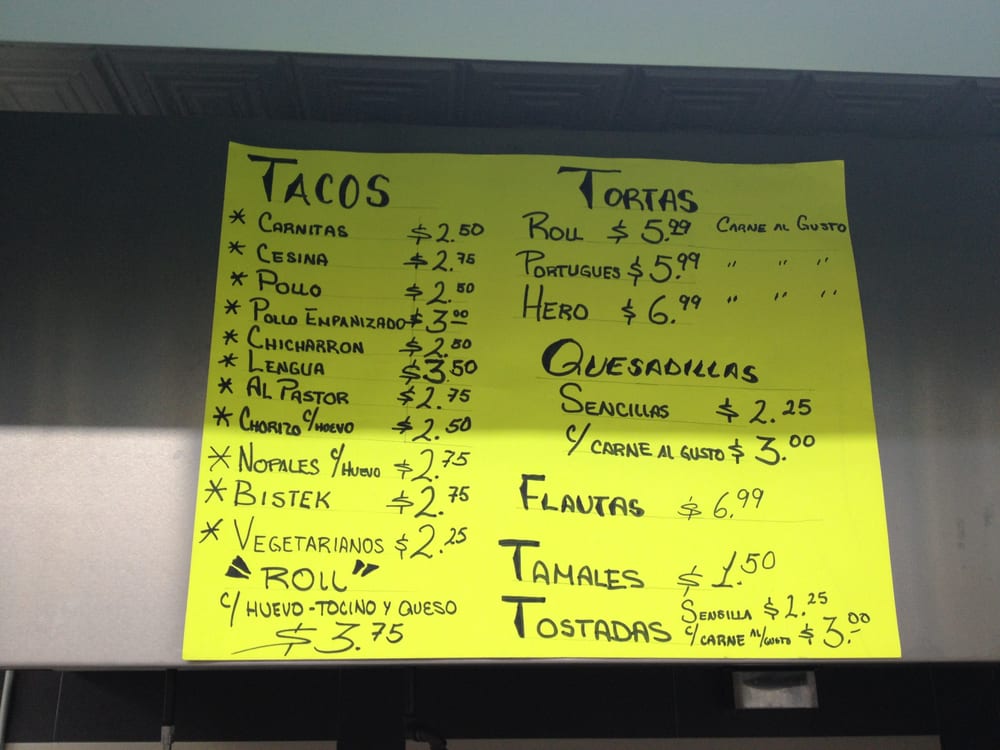 TACOS
* CARNITAS $2.50
* CESINA $2.75
* POLLO $2.50
* POLLO EMPANIZADO $3.00
* CHICHARRON $2.50
* LENGUA $3.50
* AL PASTOR $2.75
* CHORIZO C/HUEVO $2.50
* NOPALES C/HUEVO $2.75
* BISTEK $2.75
* VEGETARIANOS $2.25
"ROLL"
C/HUEVO-TOCINO Y QUESO
$3.75
TORTAS
ROLL $5.99 CARNE AL GUSTO
PORTUGUES $5.99 " " "
HERO $6.99 " " "
QUESADILLAS
SENCILLAS $2.25
C/CARNE AL GUSTO $3.00
FLAUTAS $6.99
TAMALES $1.50
TOSTADAS SENSILLA $2.25
C/CARNE AL/GUSTO $3.00